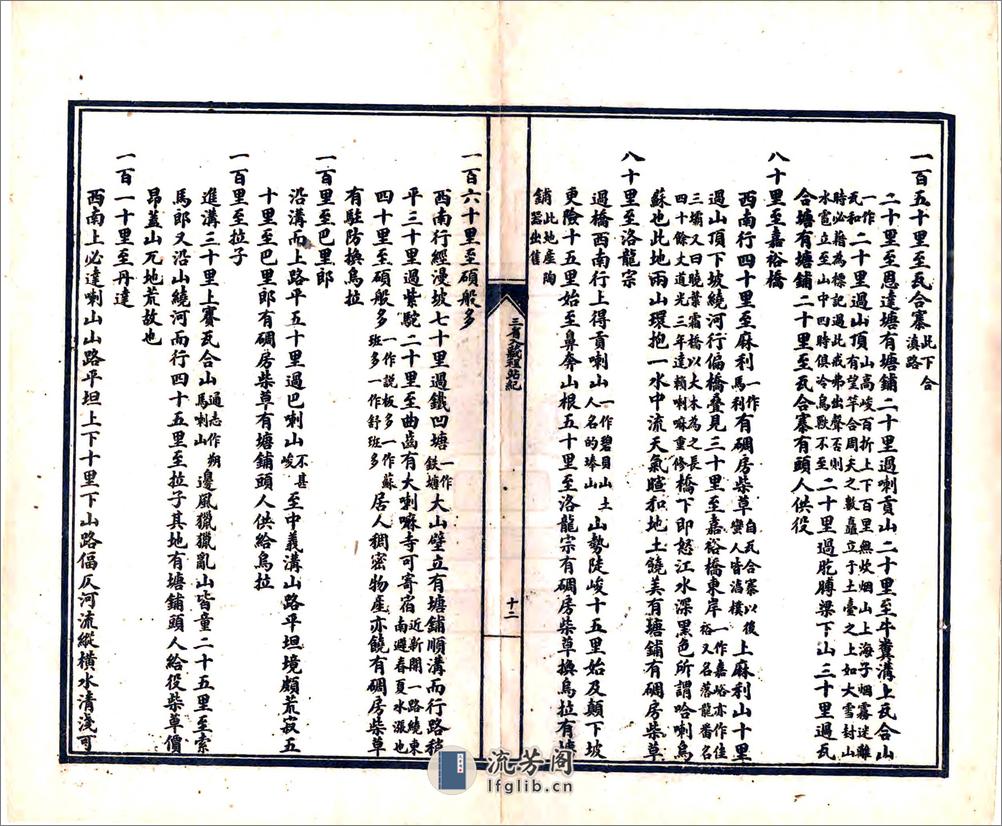 一百五十里至瓦合寨此下合滇路
二十里至恩達塘有塘鋪二十里過喇貢山二十里至牛糞溝上瓦合山
一作瓦和二十里過山頂山高峻百折上下百里無炊烟山上海子烟霧迷離時必藉為標記過此戒弗出聲否則山頂有望竿合周天之數矗立于土臺之上如大雪封山
水雹立至山中四時俱冷鳥獸不至二十里過肐膊梁下山三十里過瓦
合塘有塘鋪二十里至瓦合寨有頭人供役
八十里至嘉裕橋
西南行四十里至麻利一作馬利有碉房柴草自瓦合寨以後蠻人皆渾樸上麻利山十里
過山頂下坡繞河行偏橋疊見三十里至嘉裕橋東岸一作嘉峪亦作佳裕又名落龍番名
三壩又曰曉葉橋以大木為之長四十餘丈道光三年達賴喇嘛重修橋下即怒江水深黑色所謂哈喇烏
蘇也此地兩山環抱一水中流天氣暄和地土饒美有塘鋪有碉房柴草
八十里至洛龍宗
過橋西南行上得貢喇山一作碧貝山土人名的㙛山山勢陡峻十五里始及顛下坡
更險十五里始至鼻奔山根五十里至洛龍宗有碉房柴草換烏拉有塘
鋪此地產陶器出舊
三省入藏程站紀
十二
一百六十里至碩般多
西南行經漫坡七十里過鐵凹塘一作鉄塘大山壁立有塘鋪順溝而行路稍
平三十里過紫駝二十里至曲齒有大喇嘛寺可寄宿近新開一路繞東南避春夏水漲也
四十里至碩般多一作説板多一作蘇班多一作舒班多居人稠密物產亦饒有碉房柴草
有駐防換烏拉
一百里至巴里郎
沿溝而上路平五十里過巴喇山不甚峻至中義溝山路平坦境頗荒寂五
十里至巴里郎有碉房柴草有塘鋪頭人供給烏拉
一百里至拉子
進溝三十里上賽瓦合山通志作朔馬喇山邊風獵獵亂山皆童二十五里至索
馬郎又沿山繞河而行四十五里至拉子其地有塘鋪頭人給役柴草價
昂蓋山兀地荒故也
一百一十里至丹達
西南上必達喇山山路平坦上下十里下山路偪仄河流縱橫水清淺可
流芳阁
lfglib.cn